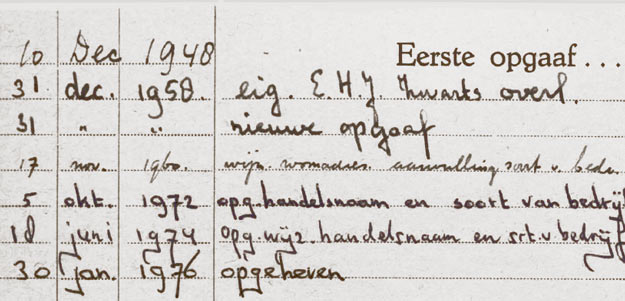 10 Dec 1948 Eerste opgaaf . . .
31 dec. 1958. eig. E.H.J. Zwarts overl.
31 " " nieuwe opgaaf
17 nov. 1960. wijz. woonadres. aanvulling srt v. bedr.
5 okt. 1972 opg. handelsnaam en soort van bedrijf
18 juni 1974 opg wijz. handelsnaam en srt. v bedrijf
30 jan. 1976 opgeheven